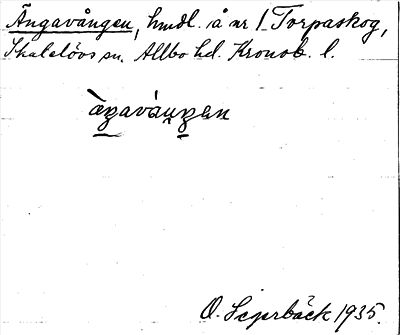 Ängavången, hmdl. å nr 1 Torpaskog,
Skatelövs sn. Allbo hd. Kronob. l.
O. Segerbäck 1935.